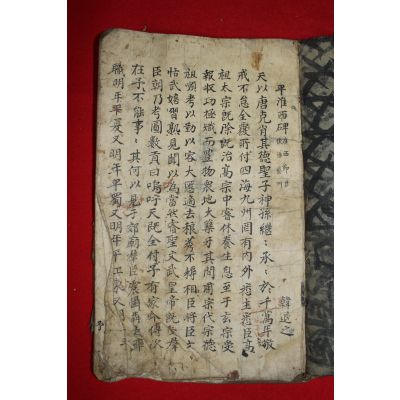 平淮西碑
韓退之
天以唐克肖其德聖子神孫繼〻承〻於千萬年敬
戒不怠全覆所付四海九州罔有內外悉主悉臣高
祖太宗既除既治高宗中睿休養生息至于玄宗受
報收功極熾而豊物衆地大孽牙其間肅宗代宗德
祖順考以勤以容大慝適去稂莠不薅相臣將臣文
恬武嬉習熟見聞以為當然睿聖文武皇帝既受羣
臣朝乃考圖數貢曰嗚呼天既全付予有家今傳次
在予不能事〻其何以見于郊廟羣臣震懾犇走率
職明年平夏又明年平蜀又明年平江東又明年平